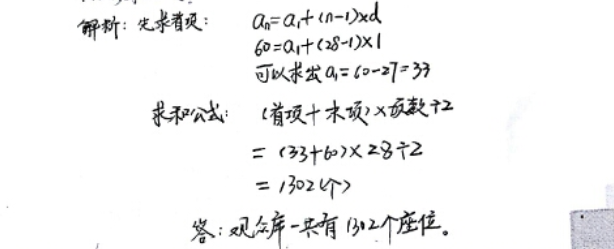 解析：先求首项： aₙ=a₁+(n-1)×d
60=a₁+(28-1)×1
可以求出a₁=60-27=33
求和公式： (首项+末项)×项数÷2
=(33+60)×28÷2
=1302(个)
答：观众席一共有1302个座位。